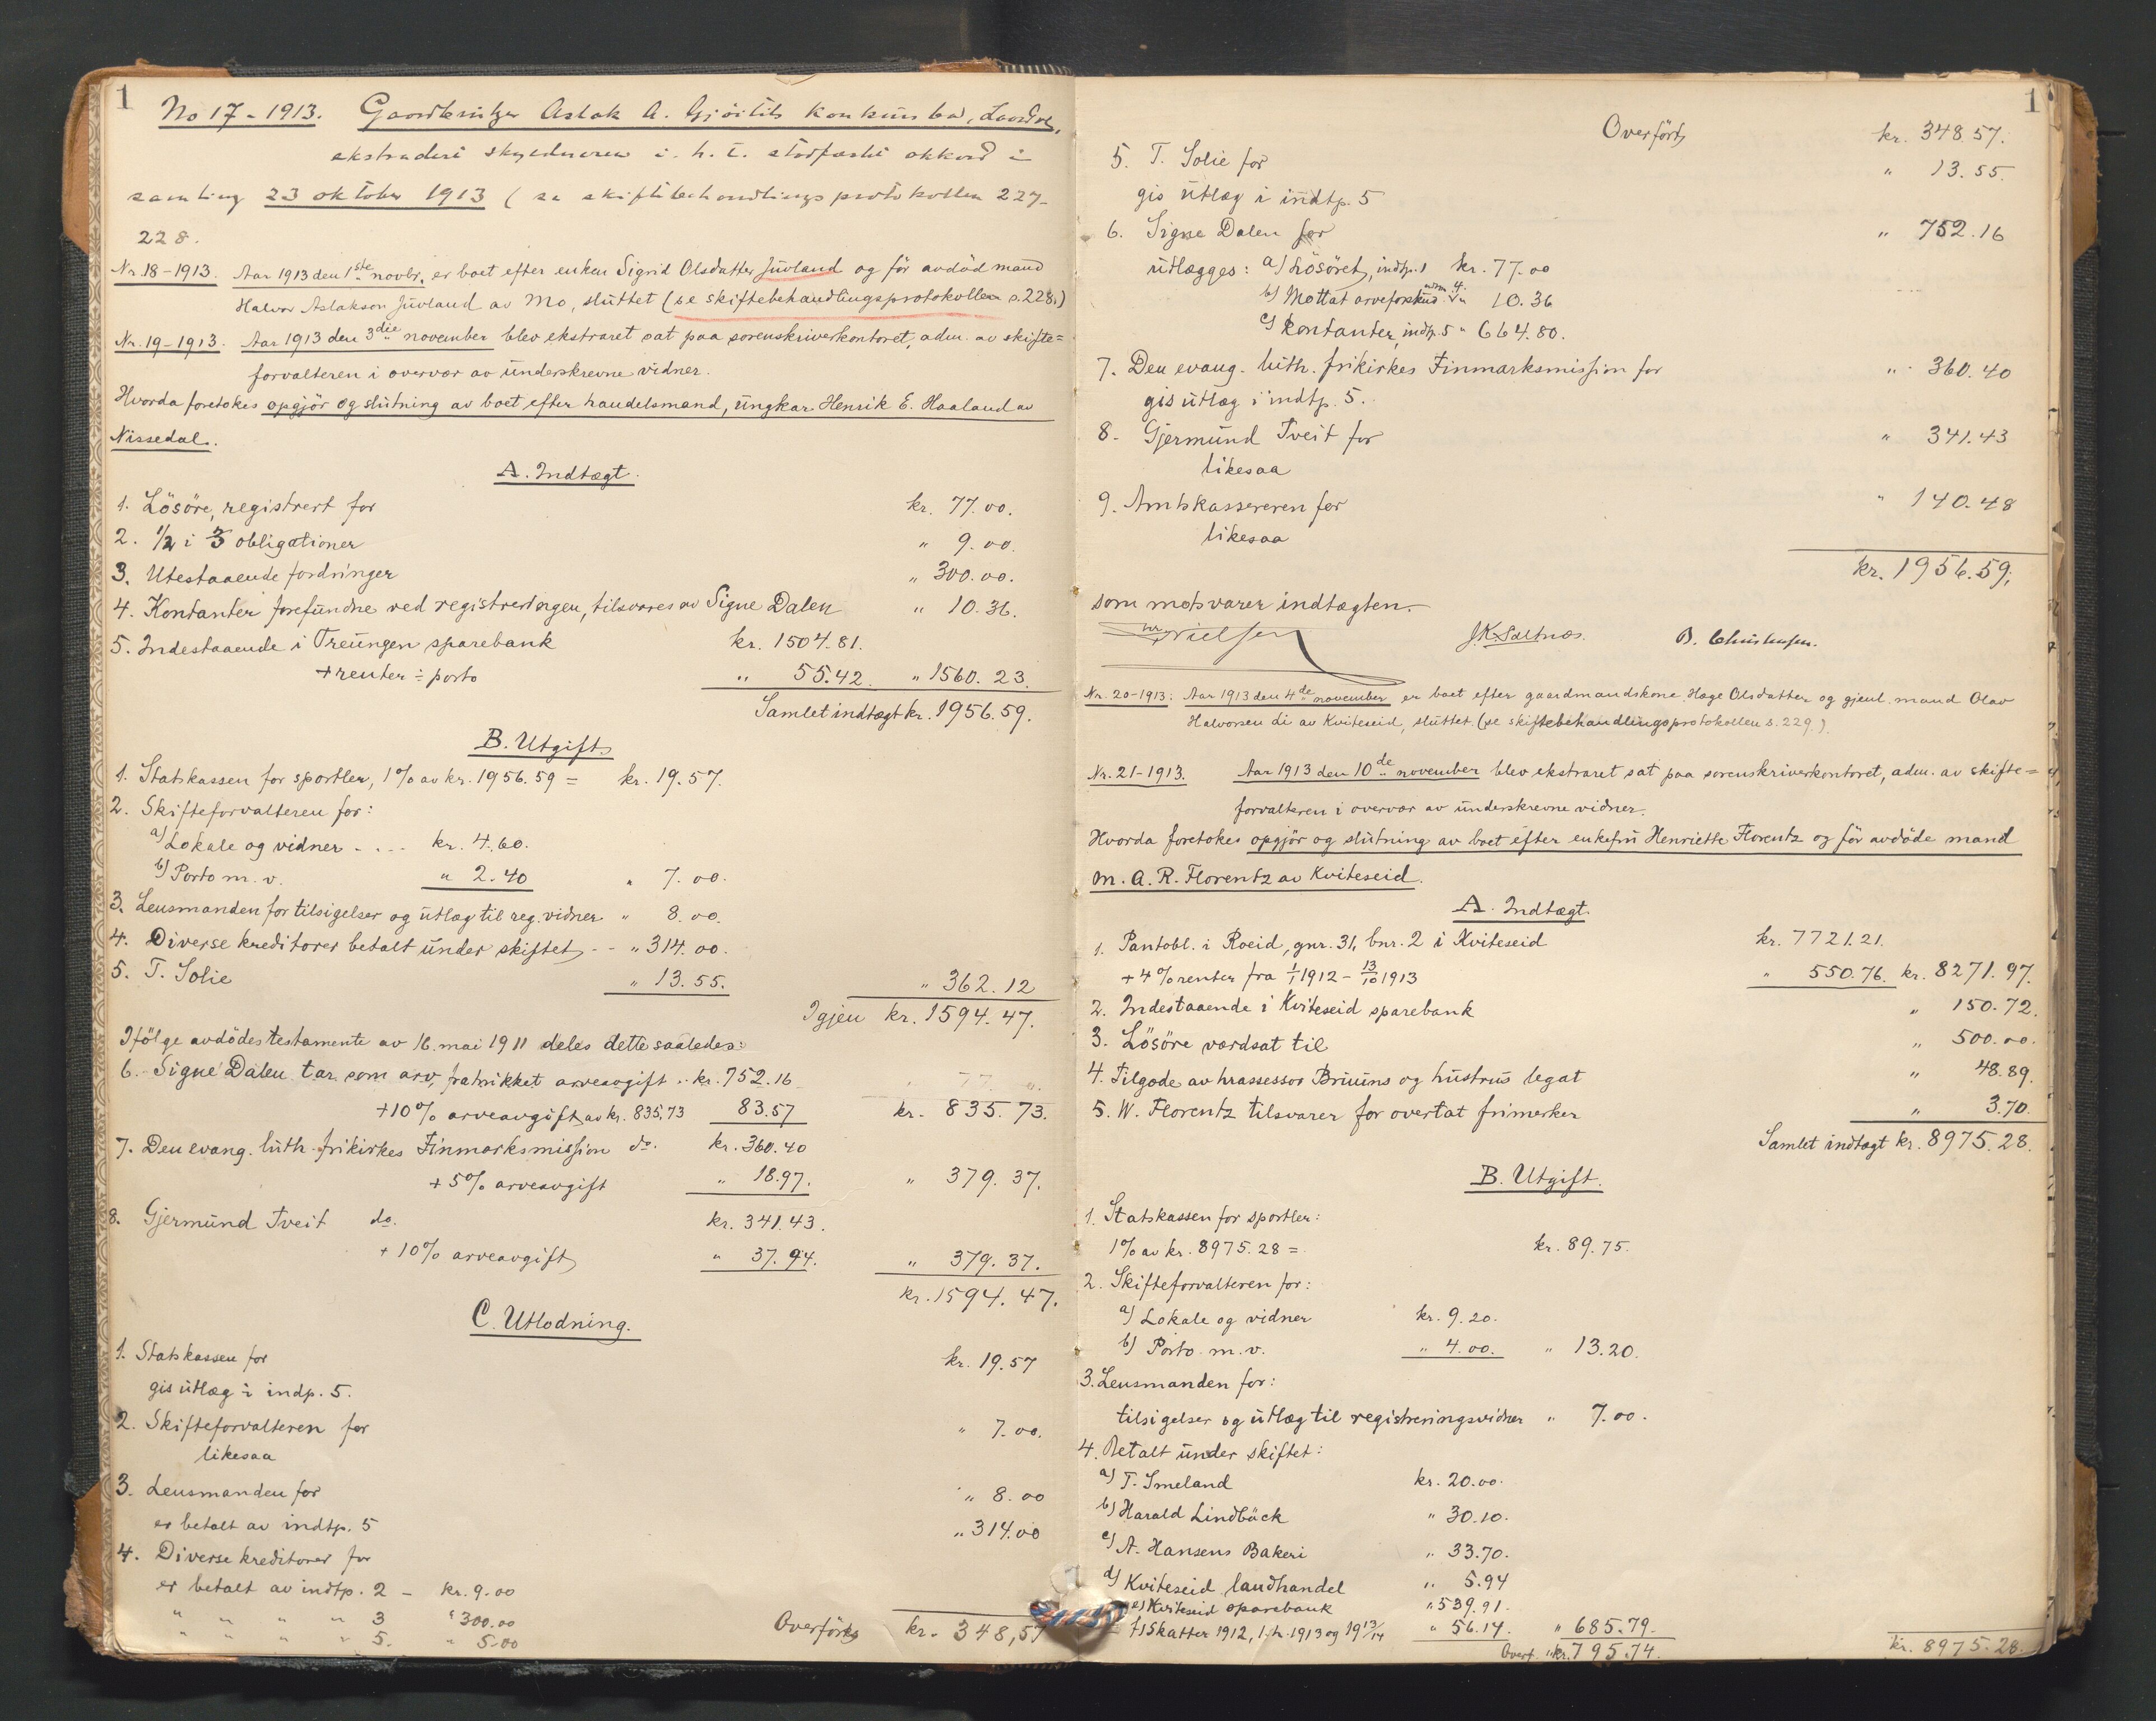 1
No 17 - 1913. Gaardbruker Aslak A. konkursbo,
ekstraderes skyldneren i h. t. akkord i
samling 23 oktober 1913 (se skiftebehandlingsprotokollen 227-
228.
Nr. 18 - 1913. Aar 1913 den 1ste novbr. er boet efter enken Sigrid Olsdatter Juvland og før avdød mand
Halvor Aslakson Juvland av Mo, sluttet (se skiftebehandlingsprotokollen s. 228.)
Nr. 19 - 1913. Aar 1913 den 3die november blev ekstraret sat paa sorenskriverkontoret, adm. av skifte=
forvalteren i overvær av underskrevne vidner.
Hvorda foretokes opgjør og slutning av boet efter handelsmand, ungkar Henrik E. Haaland av
Nissedal.
A. Indtægt.
1. Lösöre, registrert for kr. 77.00.
2. 1/2 i 3 obligationer " 9.00.
3. Utestaaende fordringer " 300.00.
4. Kontanter forefundne ved registreringen, tilsvares av Signe Dalen " 10.36.
5. Indestaaende i Treungen sparebank kr. 1504.81.
+ renter ÷ porto " 55.42. " 1560.23.
Samlet indtægt kr. 1956.59.
B. Utgift.
1. Statskassen for sportler, 1% av kr. 1956.59 = kr. 19.57.
2. Skifteforvalteren for:
a) Lokale og vidner - . . - kr. 4.60.
b) Porto m. v. " 2.40 " 7.00.
3. Lensmanden for tilsigelser og utlæg til reg. vidner " 8.00.
4. Diverse kreditorer betalt under skiftet - - " 314.00.
5. T. Solie " 13.55. " 362.12
Igjen kr. 1594.47.
Ifölge avdödes testamente av 16. mai 1911 deles dette saaledes:
6. Signe Dalen tar som arv, fratrukket arveavgift . . kr. 752.16
+ 10% arveavgift av kr. 835,73 83.57 kr. 835.73.
7. Den evang. luth. frikirkes Finmarksmission do. kr. 360.40
+ 5% arveavgift " 18.97. " 379.37.
8. Gjermund Tveit do. kr. 341.43.
+ 10% arveavgift " 37.94. " 379.37.
kr. 1594.47.
C. Utlodning.
1. Statskassen for kr. 19.57
gis utlæg i indp. 5.
2. Skifteforvalteren for " 7.00.
likesaa
3. Lensmanden for " 8.00
er betalt av indtp. 5 " 314.00
4. Diverse kreditorer for
er betalt av indtp. 2 - kr. 9.00
" " " " 3 " 300.00
" " " " 5. " 5.00
Overföres kr. 348,57
1
Overfört kr. 348.57.
5. T. Solie for " 13.55.
gis utlæg i indtp. 5
6. Signe Dalen for " 752.16
utlægges: a) Lösöret, indtp. 1 kr. 77.00
b) Mottat arveforskud 4. " 10.36
c) Kontanter, indtp. 5 " 664.80.
7. Den evang. luth. frikirkes Finmarksmission for " 360.40
gis utlæg i indtp. 5.
8. Gjermund Tveit for " 341.43
likesaa
9. Amtskassereren for " 140.48
likesaa
kr. 1956.59,
som motsvarer indtægten.
Nielsen J K Saltnes. B. Christensen.
Nr. 20 - 1913: Aar 1913 den 4de november er boet efter gaardmandskone Hæge Olsdatter og gjenl. mand Olav
Halvorsen Li av Kviteseid, sluttet. (se skiftebehandlingsprotokollen s. 229.)
Nr. 21 - 1913. Aar 1913 den 10de november blev ekstraret sat paa sorenskriverkontoret, adm. av skifte=
forvalteren i overvær av underskrevne vidner.
Hvorda foretokes opgjör og slutning av boet efter enkefru Henriette Florentz og för avdöde mand
M. A. R. Florentz av Kviteseid.
A. Indtægt.
1. Pantobl. i Roeid, gnr. 31, bnr. 2 i Kviteseid kr. 7721.21.
+ 4% renter fra 1/1 1912 - 13/10 1913 " 550.76. kr. 8271.97.
2. Indestaaende i Kviteseid sparebank " 150.72.
3. Lösöre værdsat til " 500.00.
4. Tilgode av krassessor Bruuns og hustrus legat " 48.89.
5. W. Florentz tilsvarer for overtat frimerker " 3.70.
Samlet indtægt kr. 8975.28.
B. Utgift.
1. Statskassen for sportler:
1% av kr. 8975.28 = kr. 89.75.
2. Skifteforvalteren for:
a) Lokale og vidner kr. 9.20.
b) Porto m. v. " 4.00. " 13.20.
3. Lensmanden for:
tilsigelser og utlæg til registreringsvidner " 7.00.
4. Betalt under skiftet:
a) T. Smeland kr. 20.00.
b) Harald Lindbäck " 30.10.
c) A. Hansens Bakeri " 33.70.
d) Kviteseid landhandel " 5.94
e) Kviteseid sparebank " 539.91.
f) Skatter 1912, 1. h. 1913 og 1913/14 " 56.14. " 685.79.
Overf. kr. 795.74. kr. 8975.28.